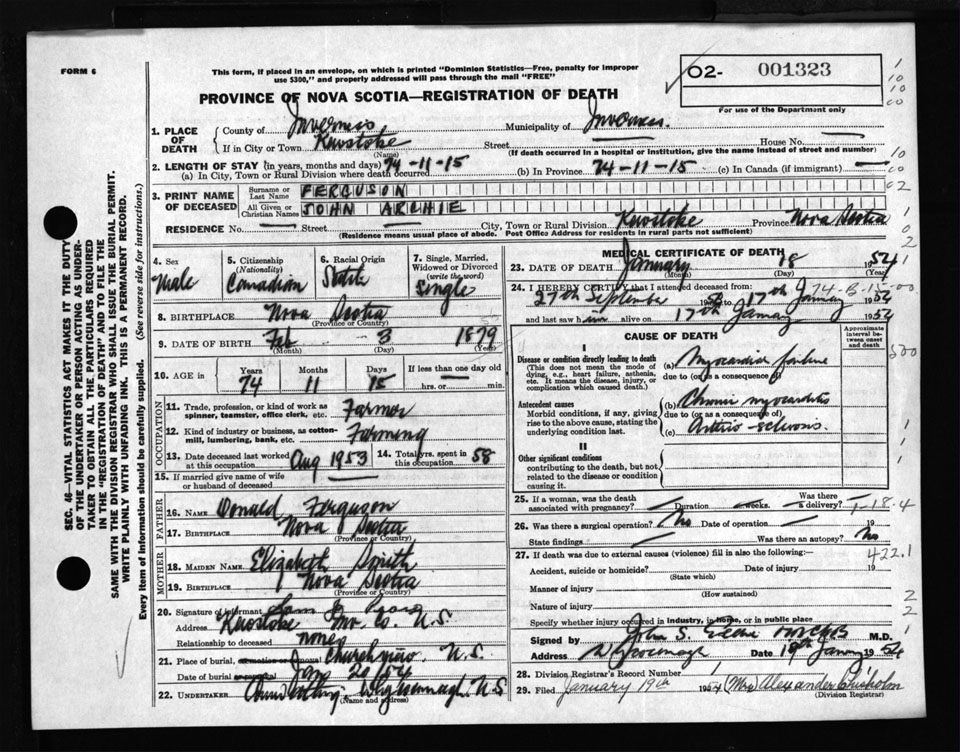 FORM 6
This form, if placed in an envelope, on which is printed "Dominion Statistics—Free, penalty for improper
use $300," and properly addressed will pass through the mail "FREE"
PROVINCE OF NOVA SCOTIA—REGISTRATION OF DEATH
O2- 001323
For use of the Department only
SEC. 46—VITAL STATISTICS ACT MAKES IT THE DUTY
OF THE UNDERTAKER OR PERSON ACTING AS UNDER-
TAKER TO OBTAIN ALL THE PARTICULARS REQUIRED
IN THE "REGISTRATION OF DEATH" AND TO FILE THE
SAME WITH THE DIVISION REGISTRAR WHO SHALL ISSUE THE BURIAL PERMIT.
WRITE PLAINLY WITH UNFADING INK. THIS IS A PERMANENT RECORD.
Every item of information should be carefully supplied. (See reverse side for instructions.)
1. PLACE OF DEATH County of Inverness Municipality of Inverness
If in City or Town Kewstoke Street House No.
(Name) (If death occurred in a hospital or institution, give the name instead of street and number)
2. LENGTH OF STAY (in years, months and days) 74-11-15
(a) In City, Town or Rural Division where death occurred (b) In Province 74-11-15 (c) In Canada (if immigrant)
3. PRINT NAME OF DECEASED Surname or Last Name FERGUSON
All Given or Christian Names JOHN ARCHIE
RESIDENCE No. Street City, Town or Rural Division Kewstoke Province Nova Scotia
(Residence means usual place of abode. Post Office Address for residents in rural parts not sufficient)
4. Sex Male
5. Citizenship (Nationality) Canadian
6. Racial Origin Scotch
7. Single, Married, Widowed or Divorced (write the word) Single
8. BIRTHPLACE Nova Scotia
(Province or Country)
9. DATE OF BIRTH Feb 3 1879
(Month) (Day) (Year)
10. AGE in Years 74 Months 11 Days 15 If less than one day old
hrs. or min.
OCCUPATION
11. Trade, profession, or kind of work as spinner, teamster, office clerk, etc. Farmer
12. Kind of industry or business, as cotton-mill, lumbering, bank, etc. Farming
13. Date deceased last worked at this occupation Aug 1953 14. Total yrs. spent in this occupation 58
15. If married give name of wife or husband of deceased
FATHER
16. NAME Donald Ferguson
17. BIRTHPLACE Nova Scotia
(Province or Country)
MOTHER
18. MAIDEN NAME Elizabeth Smith
19. BIRTHPLACE Nova Scotia
(Province or Country)
20. Signature of informant
Address Kewstoke Inv. Co. N.S.
Relationship to deceased none
21. Place of burial, cremation or removal N.S.
Date of burial or removal Jan 20 54
22. UNDERTAKER Whycocomagh, N.S
(Name and address)
MEDICAL CERTIFICATE OF DEATH
23. DATE OF DEATH January 18 1954
(Month) (Day) (Year)
24. I HEREBY CERTIFY that I attended deceased from:
27th September to 17th January 1954
and last saw him alive on 17th January 1954
CAUSE OF DEATH
Approximate interval between onset and death
I
Disease or condition directly leading to death
(This does not mean the mode of dying, e.g., heart failure, asthenia, etc. It means the disease, injury, or complication which caused death.)
(a) Myocardial failure
due to (or as a consequence of)
Antecedent causes
Morbid conditions, if any, giving rise to the above cause, stating the underlying condition last.
(b) Chronic myocarditis
due to (or as a consequence of)
(c) Arterio-sclerosis.
II
Other significant conditions
contributing to the death, but not related to the disease or condition causing it.
25. If a woman, was the death associated with pregnancy? Duration weeks. Was there a delivery?
26. Was there a surgical operation? No Date of operation 19
State findings Was there an autopsy? No
27. If death was due to external causes (violence) fill in also the following:
422.1
Accident, suicide or homicide? Date of injury 19
(State which)
Manner of injury
(How sustained)
Nature of injury
Specify whether injury occurred in industry, in home, or in public place
Signed by John S. M.D.
Address Whycocomagh Date 18th January 1954
28. Division Registrar's Record Number
29. Filed January 19th 1954 (Mrs) Alexander Chisholm
(Division Registrar)